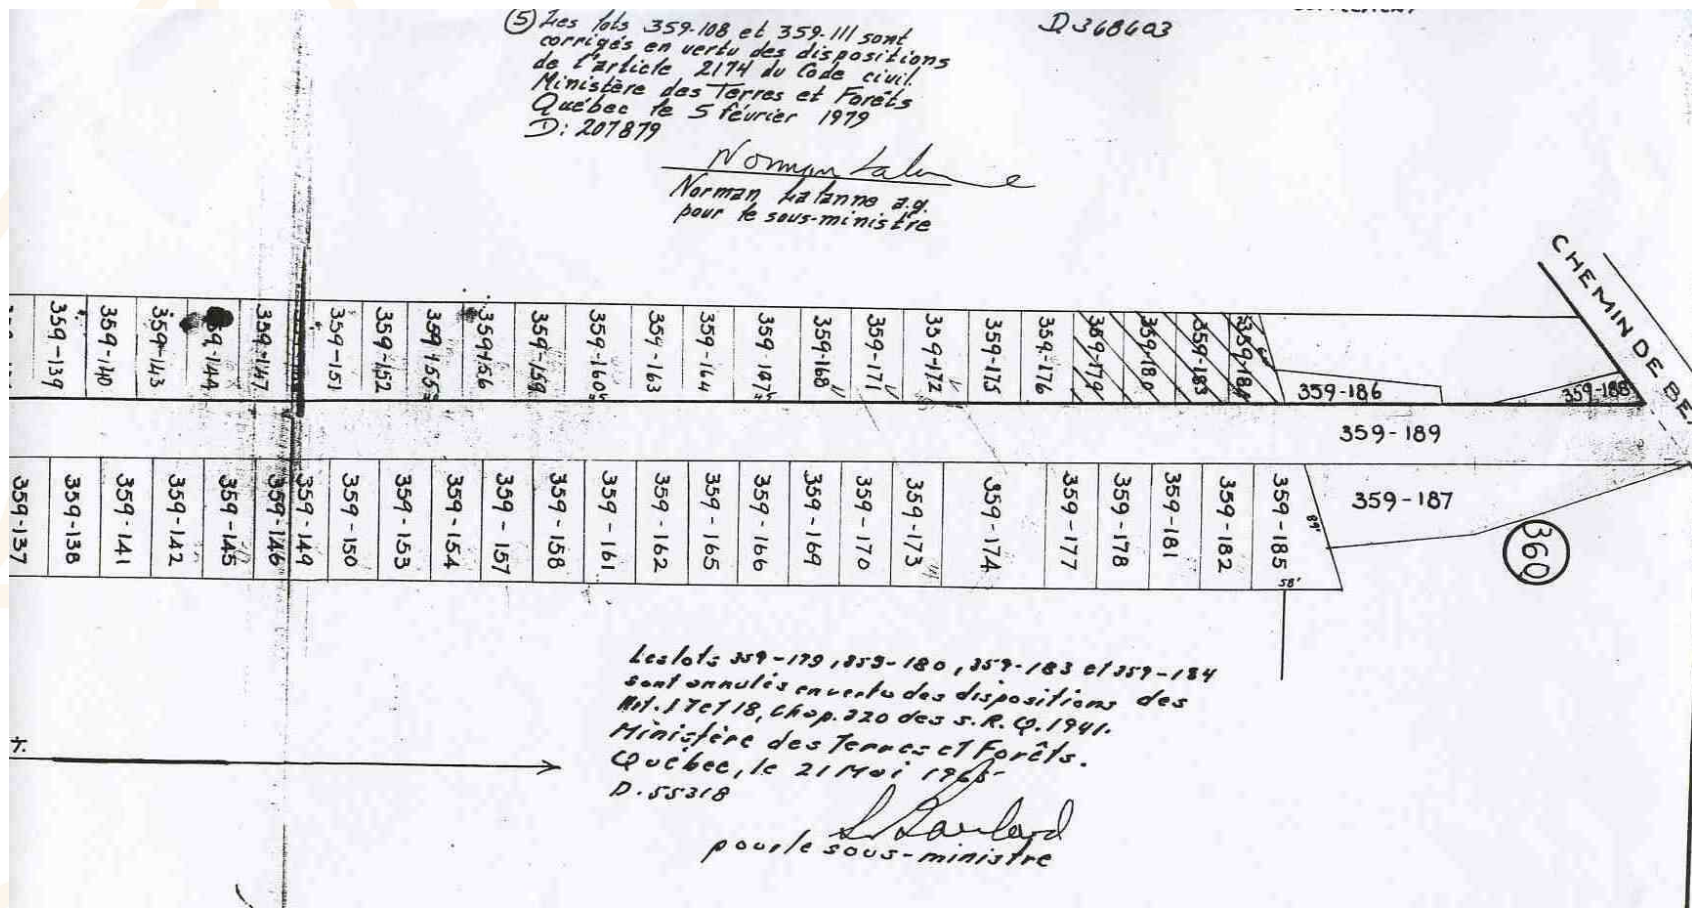 ⑤ Les lots 359-108 et 359-111 sont
corrigés en vertu des dispositions
de l'article 2174 du Code civil
Ministère des Terres et Forêts
Québec le 5 février 1979
D: 207879
D368603
Norman Lalanne a.g.
pour le sous-ministre
CHEMIN DE BE
359-139
359-140
359-143
359-144
359-147
359-151
359-152
359-155
359-156
359-159
359-160
359-163
359-164
359-168
359-171
359-172
359-175
359-176
359-179
359-180
359-183
359-184
359-186
359-188
359-189
359-137
359-138
359-141
359-142
359-145
359-146
359-149
359-150
359-153
359-154
359-157
359-158
359-161
359-162
359-165
359-166
359-169
359-170
359-173
359-174
359-177
359-178
359-181
359-182
359-185
89'
58'
359-187
360
Les lots 359-179, 359-180, 359-183 et 359-184
sont annulés en vertu des dispositions des
Art. 17 et 18, Chap. 320 des S.R.Q. 1941.
Ministère des Terres et Forêts.
Québec, le 21 Mai
D. 55318
pour le sous-ministre